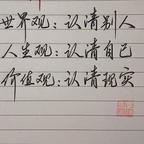 世界观：认清别人
人生观：认清自己
价值观：认清现实